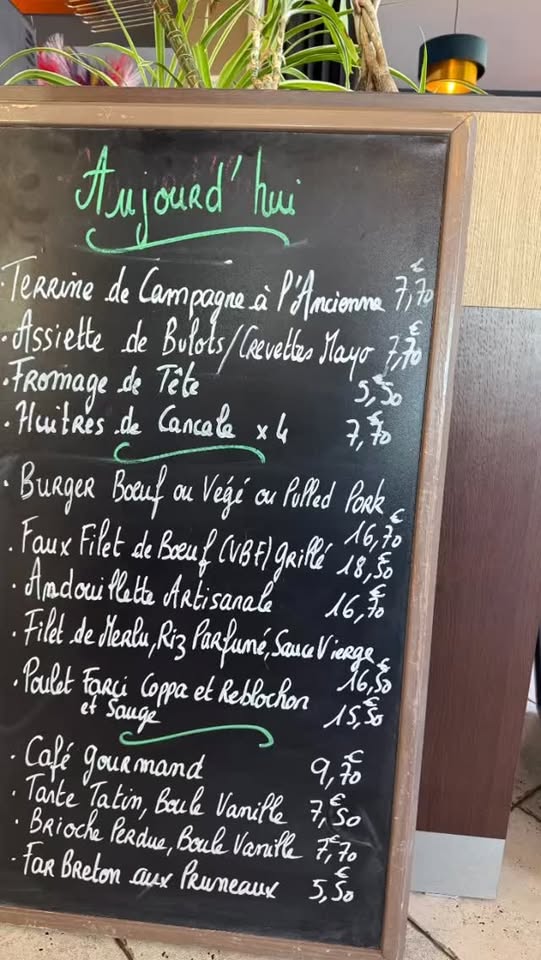 Aujourd'hui
· Terrine de Campagne à l'Ancienne 7,70€
· Assiette de Bulots/Crevettes Mayo 7,70€
· Fromage de Tête 5,50€
· Huitres de Cancale x 4 7,70€
· Burger Boeuf ou Végé ou Pulled Pork 16,70€
· Faux Filet de Boeuf (VBF) grillé 18,50€
· Andouillette Artisanale 16,70€
· Filet de Merlu, Riz Parfumé, Sauce Vierge 16,50€
· Poulet Farci Coppa et Reblochon
et Sauge 15,50€
· Café gourmand 9,70€
· Tarte Tatin, Boule Vanille 7,50€
· Brioche Perdue, Boule Vanille 7,70€
· Far Breton aux Pruneaux 5,50€